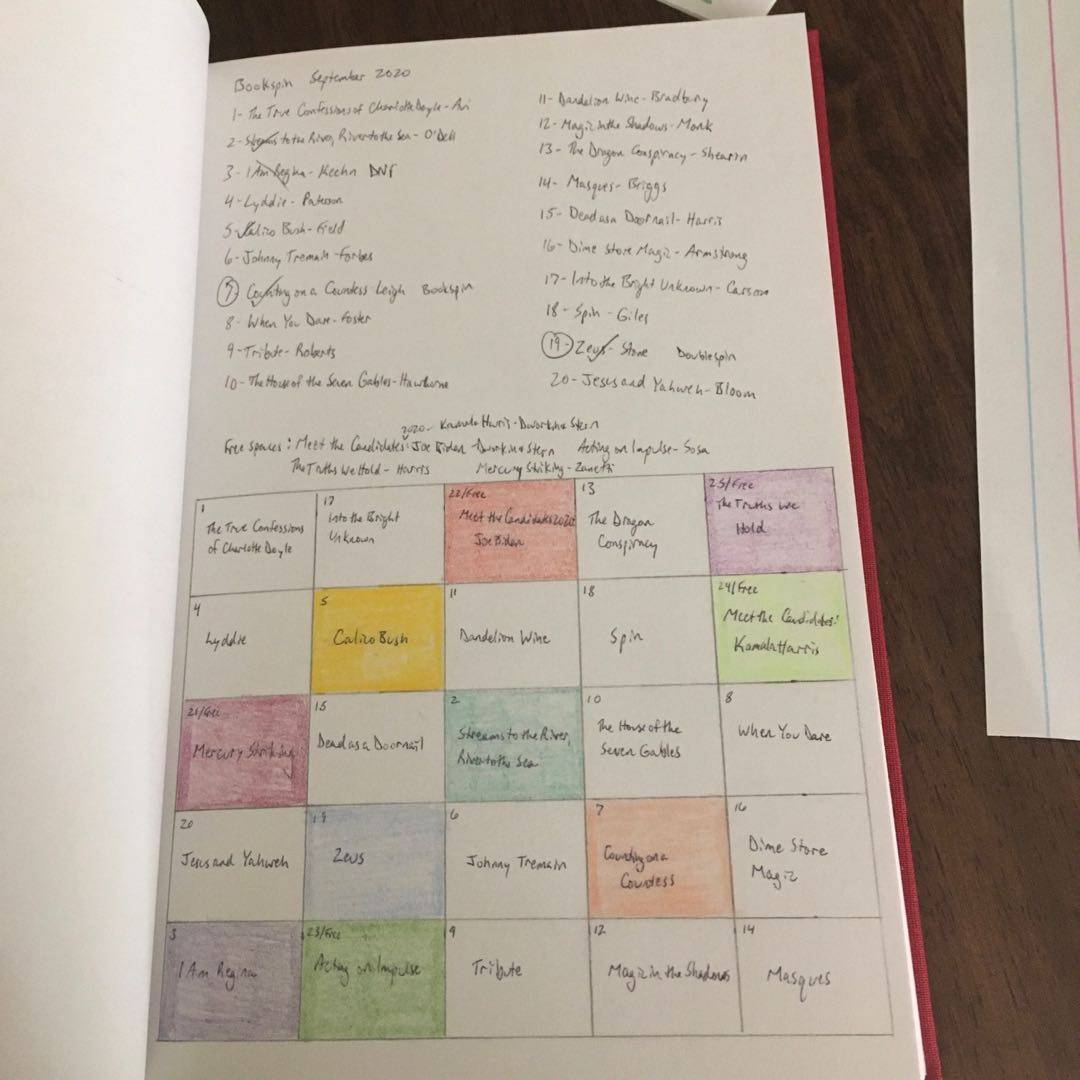 Bookspin September 2020
1- The True Confessions of Charlotte Doyle - Avi
2- Streams to the River, River to the Sea - O'Dell
3- I Am Regina - Keehn DNF
4- Lyddie - Paterson
5- Calico Bush - Field
6- Johnny Tremain - Forbes
7- Counting on a Countess Leigh Bookspin
8- When You Dare - Foster
9- Tribute - Roberts
10- The House of the Seven Gables - Hawthorne
11- Dandelion Wine - Bradbury
12- Magic in the Shadows - Monk
13- The Dragon Conspiracy - Shearin
14- Masques - Briggs
15- Dead as a Doornail - Harris
16- Dime Store Magic - Armstrong
17- Into the Bright Unknown - Carson
18- Spin - Giles
19- Zeus - Stone Doublespin
20- Jesus and Yahweh - Bloom
2020 - Kamala Harris - Dworkin & Stern
Free spaces: Meet the Candidates: Joe Biden Dworkin & Stern Acting on Impulse - Sosa
The Truths We Hold - Harris Mercury Striking - Zanetti
1
The True Confessions
of Charlotte Doyle
17
Into the Bright
Unknown
22/Free
Meet the Candidates 2020:
Joe Biden
13
The Dragon
Conspiracy
25/Free
The Truths We
Hold
4
Lyddie
5
Calico Bush
11
Dandelion Wine
18
Spin
24/Free
Meet the Candidates:
Kamala Harris
21/Free
Mercury Striking
15
Dead as a Doornail
2
Streams to the River,
River to the Sea
10
The House of the
Seven Gables
8
When You Dare
20
Jesus and Yahweh
19
Zeus
6
Johnny Tremain
7
Counting on a
Countess
16
Dime Store
Magic
3
I Am Regina
23/Free
Acting on Impulse
9
Tribute
12
Magic in the Shadows
14
Masques